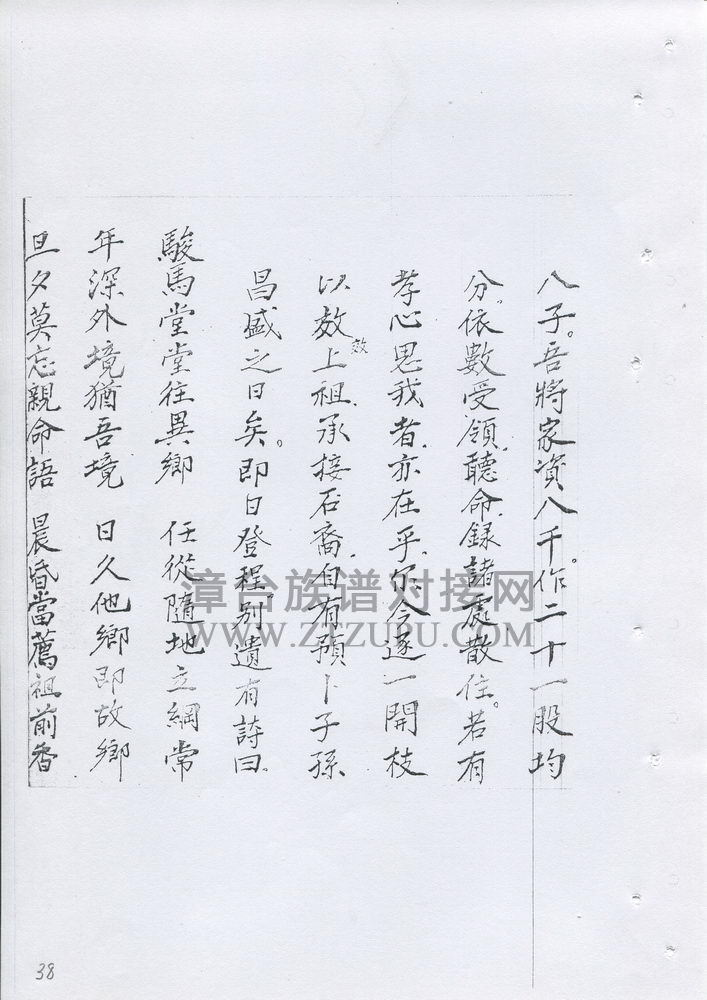 八子。吾將家資八千。作二十一股均
分。依數受領。聽命錄諸處散住。若有
孝心思我者。亦在乎。尔今逐一開枝
以效上祖。承接石裔。自有預卜子孫
效
昌盛之日矣。即日登程別遺有詩曰。
駿馬堂堂往異鄉 任從隨地立綱常
年深外境猶吾境 日久他鄉即故鄉
旦夕莫忘親命語 晨昏當薦祖前香
漳台族谱对接网
WWW.ZTZUPU.COM
38